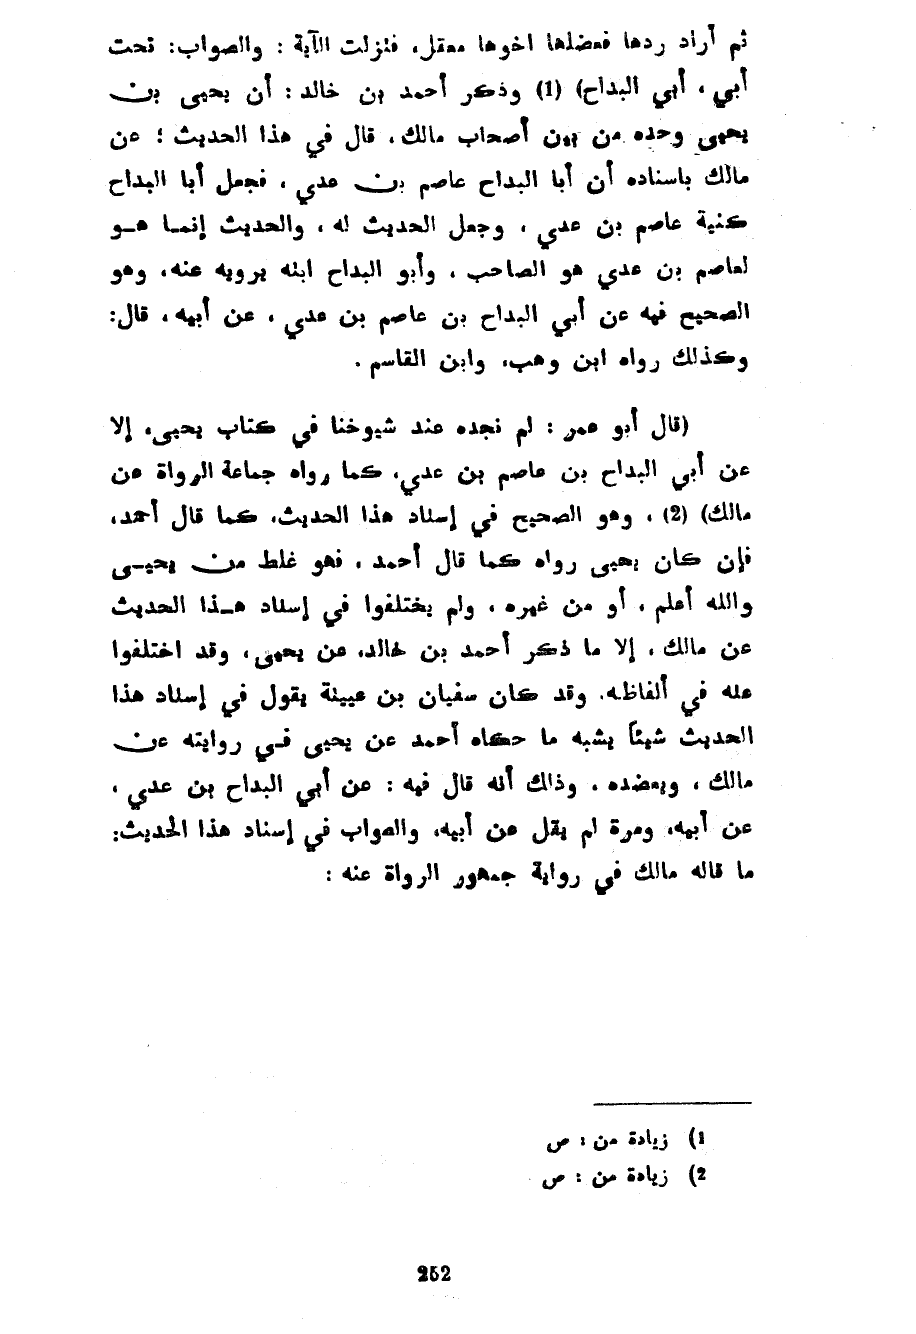 ثم أراد ردها فعضلها اخوها معقل، فنزلت الآية : والصواب: تحت
أبي ، أبي البداح) (1) وذكر أحمد بن خالد : أن يحيى بن
يحيى وحده من بين أصحاب مالك ، قال في هذا الحديث ؛ عن
مالك باسناده أن أبا البداح عاصم بن عدي ، فجعل أبا البداح
كنية عاصم بن عدي ، وجعل الحديث له ، والحديث إنمـا هــو
لعاصم بن عدي هو الصاحب ، وأبو البداح ابنه يرويه عنه، وهو
الصحيح فيه عن أبي البداح بن عاصم بن عدي ، عن أبيه ، قال:
وكذلك رواه ابن وهب، وابن القاسم .
(قال أبو عمر : لم نجده عند شيوخنا في كتاب يحيى، إلا
عن أبي البداح بن عاصم بن عدي، كما رواه جماعة الرواة عن
مالك) (2) ، وهو الصحيح في إسناد هذا الحديث، كما قال أحمد،
فإن كان يحيى رواه كما قال أحمد ، فهو غلط من يحيـى
والله أعلم ، أو من غيره ، ولم يختلفوا في إسناد هـذا الحديث
عن مالك ، إلا ما ذكر أحمد بن خالد، عن يحيى ، وقد اختلفوا
عنه في ألفاظه. وقد كان سفيان بن عيينة يقول في إسناد هذا
الحديث شيئاً يشبه ما حكاه أحمد عن يحيى فـي روايته عن
مالك ، ويعضده ، وذاك أنه قال فيه : عن أبي البداح بن عدي ،
عن أبيه، ومرة لم يقل عن أبيه، والصواب في إسناد هذا الحديث:
ما قاله مالك في رواية جمهور الرواة عنه :
1) زيادة من : ص
2) زيادة من : ص
252